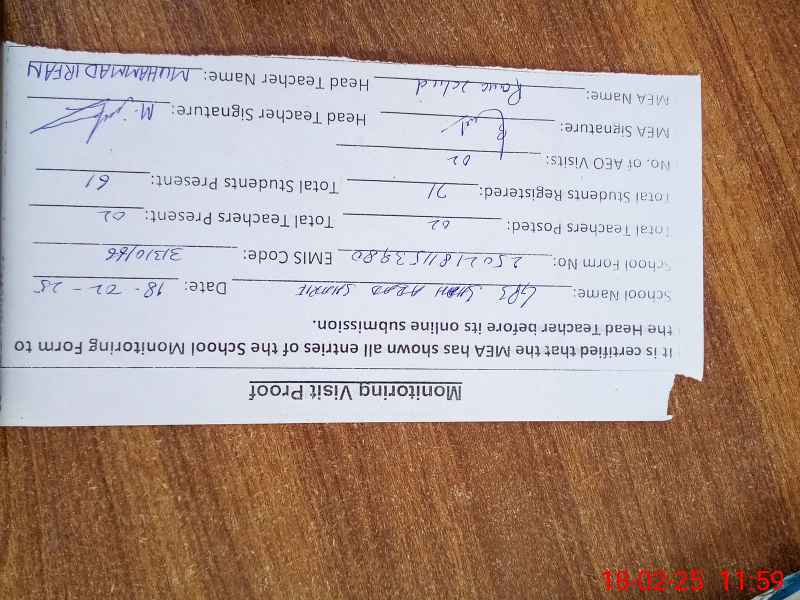 Monitoring Visit Proof
It is certified that the MEA has shown all entries of the School Monitoring Form to
the Head Teacher before its online submission.
School Name: GPS SHAH ABAD SHARIF Date: 18-02-25
School Form No: EMIS Code: 31310166
Total Teachers Posted: 02 Total Teachers Present: 02
Total Students Registered: 71 Total Students Present: 61
No. of AEO Visits: 02
MEA Signature: Head Teacher Signature:
MEA Name: Head Teacher Name: MUHAMMAD IRFAN
18-02-25 11:59